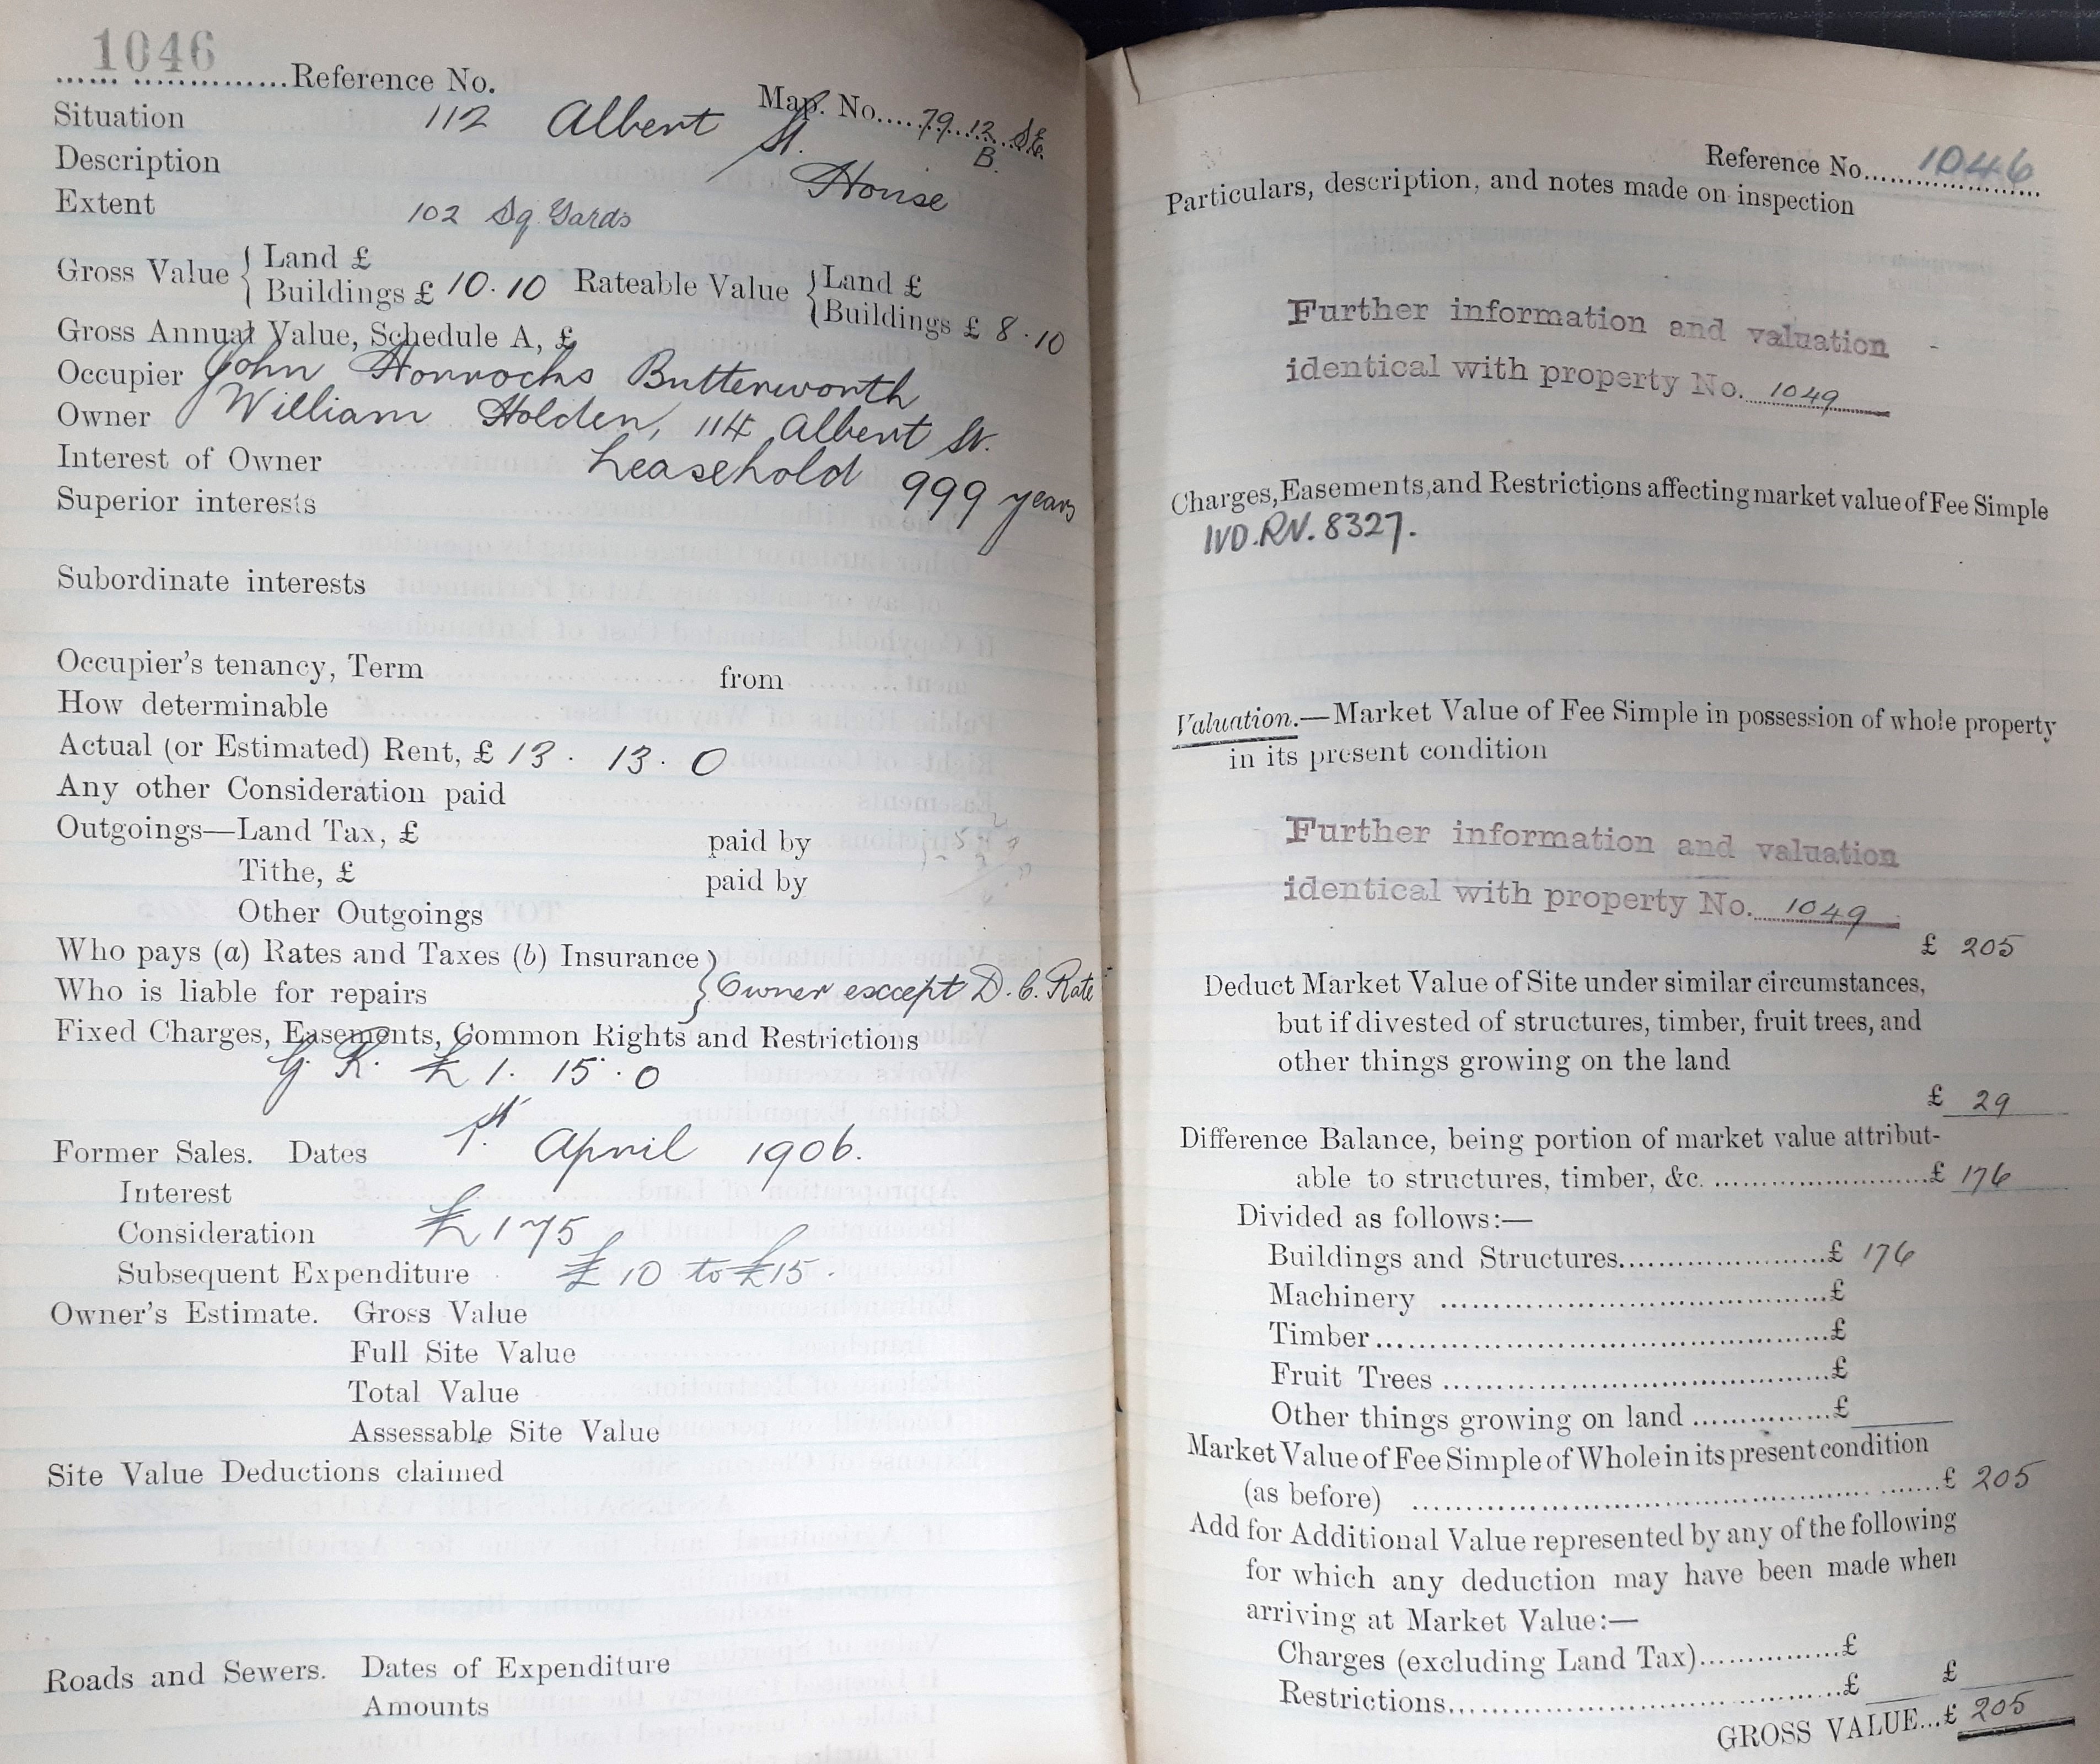 1046
...... ..............Reference No.
Map. No.....79.12.SE.
B.
Situation 112 Albert St.
Description House
Extent 102 Sq Yards
Gross Value { Land £
Buildings £ 10.10 Rateable Value { Land £
Buildings £ 8.10
Gross Annual Value, Schedule A, £
Occupier John Horrocks Butterworth
Owner William Holden, 114 Albert St.
Interest of Owner Leasehold 999 years
Superior interests
Subordinate interests
Occupier's tenancy, Term from
How determinable
Actual (or Estimated) Rent, £ 13 . 13 . 0
Any other Consideration paid
Outgoings—Land Tax, £ paid by
Tithe, £ paid by
Other Outgoings
Who pays (a) Rates and Taxes (b) Insurance
Who is liable for repairs } Owner except D. C. Rate
Fixed Charges, Easements, Common Rights and Restrictions
G. R. £ 1. 15 . 0
Former Sales. Dates 1st April 1906.
Interest
Consideration £175
Subsequent Expenditure £10 to £15.
Owner's Estimate. Gross Value
Full Site Value
Total Value
Assessable Site Value
Site Value Deductions claimed
Roads and Sewers. Dates of Expenditure
Amounts
Reference No. 1046
Particulars, description, and notes made on inspection
Further information and valuation
identical with property No. 1049
Charges, Easements, and Restrictions affecting market value of Fee Simple
IVD.RN.8327.
Valuation.—Market Value of Fee Simple in possession of whole property
in its present condition
Further information and valuation
identical with property No. 1049
£ 205
Deduct Market Value of Site under similar circumstances,
but if divested of structures, timber, fruit trees, and
other things growing on the land
£ 29
Difference Balance, being portion of market value attribut-
able to structures, timber, &c. ........................£ 176
Divided as follows:—
Buildings and Structures.......................£ 176
Machinery .......................................£
Timber.............................................£
Fruit Trees .......................................£
Other things growing on land ...............£
Market Value of Fee Simple of Whole in its present condition
(as before) ..............................................£ 205
Add for Additional Value represented by any of the following
for which any deduction may have been made when
arriving at Market Value:—
Charges (excluding Land Tax)...............£
Restrictions.......................................£ £
GROSS VALUE...£ 205